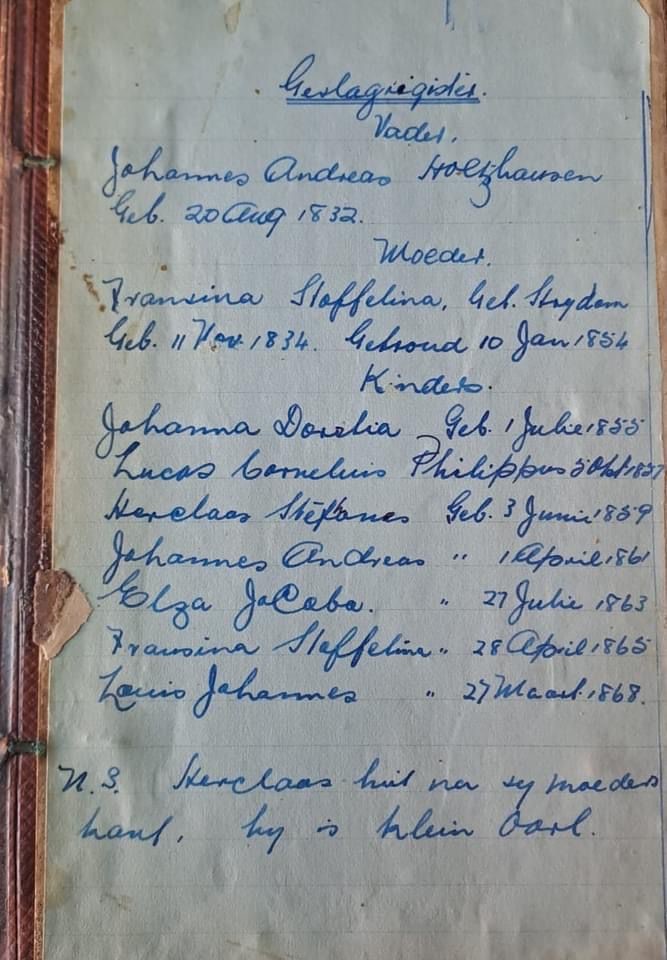 Geslagregister.
Vader.
Johannes Andreas Holtzhausen
Geb. 20 Aug 1832.
Moeder.
Fransina Stoffelina, Geb. Strydom
Geb. 11 Nov. 1834. Getroud 10 Jan 1854
Kinders.
Johanna Dorelia Geb. 1 Julie 1855
Lucas Cornelius Philippus 5 Okt 1857
Herclaas Stefanes Geb. 3 Junie 1859
Johannes Andreas " 1 April 1861
Elza JaCoba. " 27 Julie 1863
Fransina Stoffelina " 28 April 1865
Louis Johannes " 27 Maart 1868.
N.S. Herclaas hiet na sy moeders
kant, hy is klein